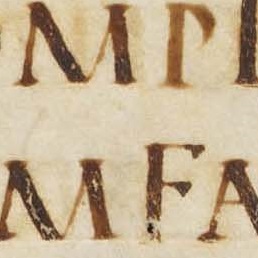 MPI
MFA